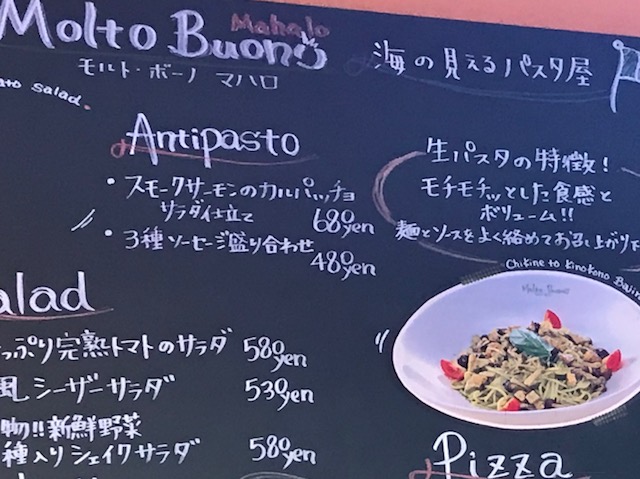 Molto Buono
Mahalo
モルト・ボーノ マハロ
海の見えるパスタ屋
salad.
Antipasto
・スモークサーモンのカルパッチョ
サラダ仕立て
680yen
・3種ソーセージ盛り合わせ
480yen
生パスタの特徴!
モチモチッとした食感と
ボリューム!!
麺とソースをよく絡めてお召し上がり下
Chikine to Kinokono Baji
Molto Buono
alad
っぷり完熟トマトのサラダ 580yen
風シーザーサラダ 530yen
物!!新鮮野菜
種入りシェイクサラダ 580yen
Pizza